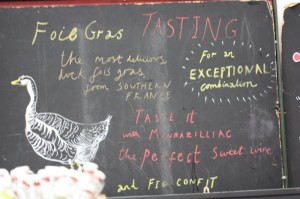 Foie Gras TASTING
the most delicious
duck foie gras
from SOUTHERN
FRANCE
For an
EXCEPTIONAL
combination
TASTE IT
with MONBAZILLIAC
the Perfect Sweet wine
and FIG CONFIT